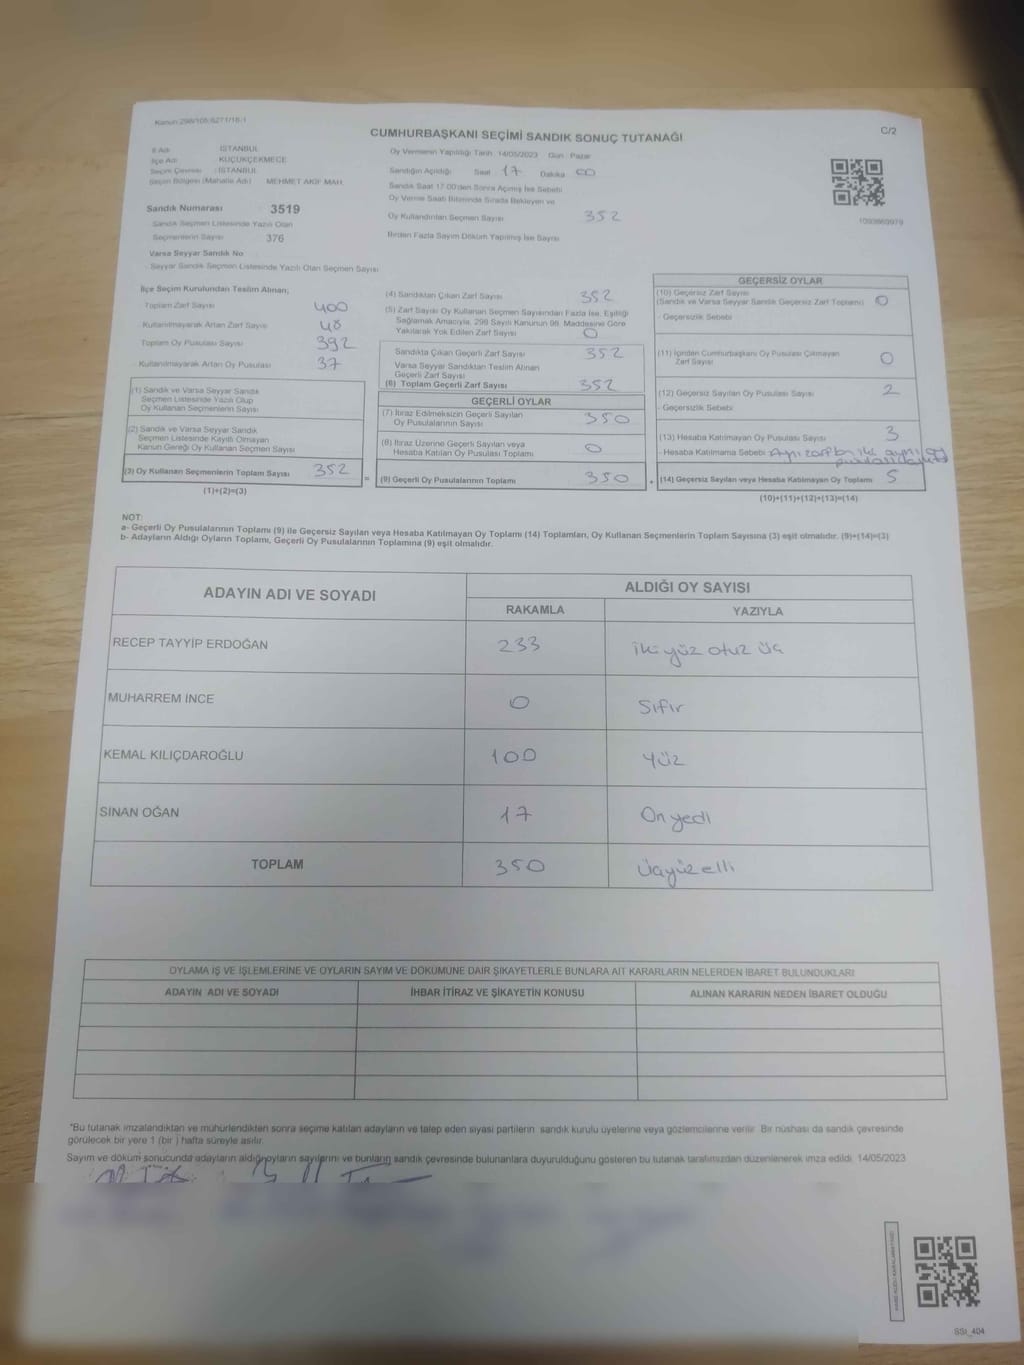 Kanun 298/105;6271/16-1
C/2
CUMHURBAŞKANI SEÇİMİ SANDIK SONUÇ TUTANAĞI
İl Adı İSTANBUL
İlçe Adı KÜÇÜKÇEKMECE
Seçim Çevresi : İSTANBUL
Seçim Bölgesi (Mahalle Adı) MEHMET AKİF MAH.
Sandık Numarası 3519
Sandık Seçmen Listesinde Yazılı Olan
Seçmenlerin Sayısı 376
Varsa Seyyar Sandık No
- Seyyar Sandık Seçmen Listesinde Yazılı Olan Seçmen Sayısı
Oy Vermenin Yapıldığı Tarih 14/05/2023 Gün : Pazar
Sandığın Açıldığı Saat 17 Dakika 00
Sandık Saat 17:00'den Sonra Açılmış İse Sebebi
Oy Verme Saati Bitiminde Sırada Bekleyen ve
Oy Kullandırılan Seçmen Sayısı 352
Birden Fazla Sayım Döküm Yapılmış İse Sayısı
1093869979
İlçe Seçim Kurulundan Teslim Alınan;
Toplam Zarf Sayısı 400
Kullanılmayarak Artan Zarf Sayısı 48
Toplam Oy Pusulası Sayısı 392
- Kullanılmayarak Artan Oy Pusulası 37
(1) Sandık ve Varsa Seyyar Sandık
Seçmen Listesinde Yazılı Olup
Oy Kullanan Seçmenlerin Sayısı
(2) Sandık ve Varsa Seyyar Sandık
Seçmen Listesinde Kayıtlı Olmayan
Kanun Gereği Oy Kullanan Seçmen Sayısı
(3) Oy Kullanan Seçmenlerin Toplam Sayısı 352
(1)+(2)=(3)
(4) Sandıktan Çıkan Zarf Sayısı 352
(5) Zarf Sayısı Oy Kullanan Seçmen Sayısından Fazla İse, Eşitliği
Sağlamak Amacıyla, 298 Sayılı Kanunun 98. Maddesine Göre
Yakılarak Yok Edilen Zarf Sayısı 0
Sandıkta Çıkan Geçerli Zarf Sayısı 352
Varsa Seyyar Sandıktan Teslim Alınan
Geçerli Zarf Sayısı
(6) Toplam Geçerli Zarf Sayısı 352
GEÇERLİ OYLAR
(7) İtiraz Edilmeksizin Geçerli Sayılan
Oy Pusulalarının Sayısı 350
(8) İtiraz Üzerine Geçerli Sayılan veya
Hesaba Katılan Oy Pusulası Toplamı 0
= (9) Geçerli Oy Pusulalarının Toplamı 350 +
GEÇERSİZ OYLAR
(10) Geçersiz Zarf Sayısı
(Sandık ve Varsa Seyyar Sandık Geçersiz Zarf Toplamı) 0
- Geçersizlik Sebebi
(11) İçinden Cumhurbaşkanı Oy Pusulası Çıkmayan
Zarf Sayısı 0
(12) Geçersiz Sayılan Oy Pusulası Sayısı 2
- Geçersizlik Sebebi
(13) Hesaba Katılmayan Oy Pusulası Sayısı 3
- Hesaba Katılmama Sebebi Aynı zarfta iki aynı oy
(14) Geçersiz Sayılan veya Hesaba Katılmayan Oy Toplamı 5
(10)+(11)+(12)+(13)=(14)
NOT:
a- Geçerli Oy Pusulalarının Toplamı (9) ile Geçersiz Sayılan veya Hesaba Katılmayan Oy Toplamı (14) Toplamları, Oy Kullanan Seçmenlerin Toplam Sayısına (3) eşit olmalıdır. (9)+(14)=(3)
b- Adayların Aldığı Oyların Toplamı, Geçerli Oy Pusulalarının Toplamına (9) eşit olmalıdır.
ADAYIN ADI VE SOYADI ALDIĞI OY SAYISI
RAKAMLA YAZIYLA
RECEP TAYYİP ERDOĞAN 233 iki yüz otuz üç
MUHARREM İNCE 0 Sıfır
KEMAL KILIÇDAROĞLU 100 yüz
SİNAN OĞAN 17 On yedi
TOPLAM 350 üçyüz elli
OYLAMA İŞ VE İŞLEMLERİNE VE OYLARIN SAYIM VE DÖKÜMÜNE DAİR ŞİKAYETLERLE BUNLARA AİT KARARLARIN NELERDEN İBARET BULUNDUKLARI
ADAYIN ADI VE SOYADI İHBAR İTİRAZ VE ŞİKAYETİN KONUSU ALINAN KARARIN NEDEN İBARET OLDUĞU
*Bu tutanak imzalandıktan ve mühürlendikten sonra seçime katılan adayların ve talep eden siyasi partilerin sandık kurulu üyelerine veya gözlemcilerine verilir. Bir nüshası da sandık çevresinde
görülecek bir yere 1 (bir ) hafta süreyle asılır.
Sayım ve döküm sonucunda adayların aldığı oyların sayılarını ve bunların sandık çevresinde bulunanlara duyurulduğunu gösteren bu tutanak tarafımızdan düzenlenerek imza edildi. 14/05/2023
SSt_404